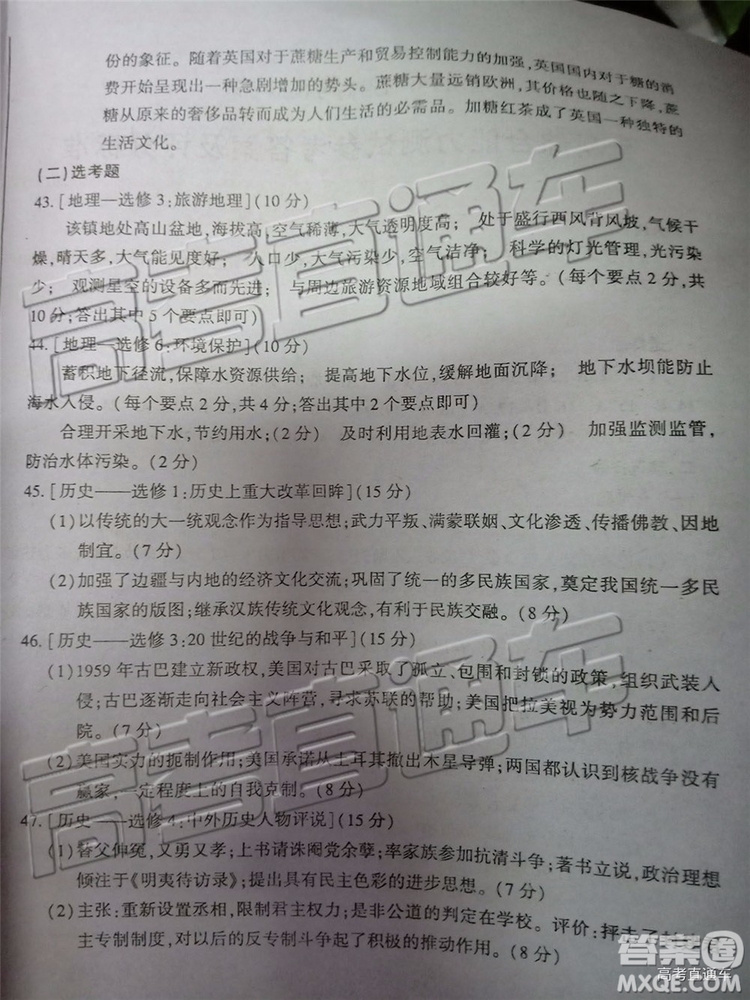 份的象征。随着英国对于蔗糖生产和贸易控制能力的加强，英国国内对于糖的消
费开始呈现出一种急剧增加的势头。蔗糖大量远销欧洲，其价格也随之下降，蔗
糖从原来的奢侈品转而成为人们生活的必需品。加糖红茶成了英国一种独特的
生活文化。
(二)选考题
43.[地理—选修3:旅游地理](10分)
该镇地处高山盆地，海拔高，空气稀薄，大气透明度高； 处于盛行西风背风坡，气候干
燥，晴天多，大气能见度好； 人口少，大气污染少，空气洁净； 科学的灯光管理，光污染
少； 观测星空的设备多而先进； 与周边旅游资源地域组合较好等。(每个要点2分，共
10分；答出其中5个要点即可)
44.[地理—选修6:环境保护](10分)
蓄积地下径流，保障水资源供给； 提高地下水位，缓解地面沉降； 地下水坝能防止
海水入侵。(每个要点2分，共4分；答出其中2个要点即可)
合理开采地下水，节约用水；(2分) 及时利用地表水回灌；(2分) 加强监测监管，
防治水体污染。(2分)
45.[历史——选修1:历史上重大改革回眸](15分)
(1)以传统的大一统观念作为指导思想；武力平叛、满蒙联姻、文化渗透、传播佛教、因地
制宜。(7分)
(2)加强了边疆与内地的经济文化交流；巩固了统一的多民族国家，奠定我国统一多民
族国家的版图；继承汉族传统文化观念，有利于民族交融。(8分)
46.[历史——选修3:20世纪的战争与和平](15分)
(1)1959年古巴建立新政权，美国对古巴采取了孤立、包围和封锁的政策，组织武装入
侵；古巴逐渐走向社会主义阵营，寻求苏联的帮助；美国把拉美视为势力范围和后
院。(7分)
(2)美国实力的扼制作用；美国承诺从土耳其撤出木星导弹；两国都认识到核战争没有
赢家，一定程度上的自我克制。(8分)
47.[历史——选修4:中外历史人物评说](15分)
(1)替父伸冤，又勇又孝；上书请诛阉党余孽；率家族参加抗清斗争；著书立说，政治理想
倾注于《明夷待访录》；提出具有民主色彩的进步思想。(7分)
(2)主张：重新设置丞相，限制君主权力；是非公道的判定在学校。评价：抨击了
主专制制度，对以后的反专制斗争起了积极的推动作用。(8分)
高考直通车
高考直通车
答案圈
高考直通车
MXQE.COM